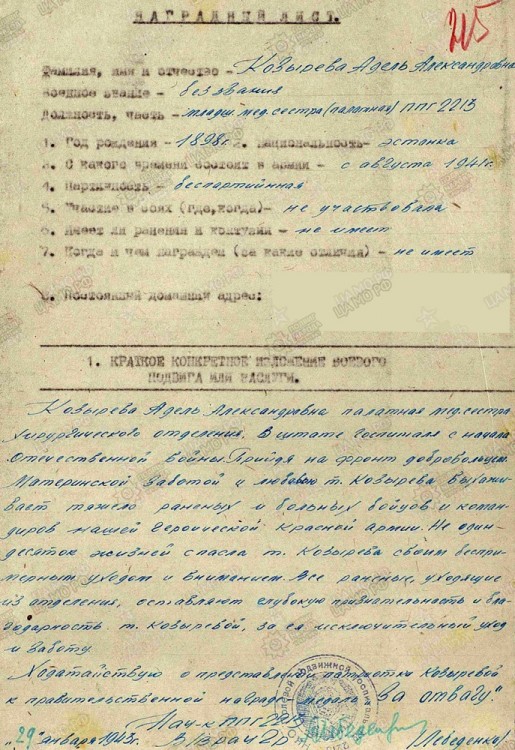 НАГРАДНЫЙ ЛИСТ.
215
Фамилия, имя и отчество - Козырева Адель Александровна
Военное звание - без звания
Должность, часть - младш. мед. сестра (палатная) ППГ 2213
1. Год рождения - 1898 г. 2. Национальность - эстонка
3. С какого времени состоит в армии - с августа 1941 г.
4. Партийность - беспартийная
5. Участие в боях (где, когда) - не участвовала
6. Имеет ли ранения и контузии - не имеет
7. Когда и чем награжден (за какие отличия) - не имеет
8. Постоянный домашний адрес:
1. КРАТКОЕ КОНКРЕТНОЕ ИЗЛОЖЕНИЕ БОЕВОГО
ПОДВИГА ИЛИ ЗАСЛУГИ.
Козырева Адель Александровна палатная мед. сестра
хирургического отделения. В штате госпиталя с начала
Отечественной войны. Прийдя на фронт добровольцем.
Материнской заботой и любовью т. Козырева выхажи-
вает тяжело раненых и больных бойцов и коман-
диров нашей героической Красной армии. Не один-
десяток жизней спасла т. Козырева своим беспри-
мерным уходом и вниманием. Все раненые, уходящие
из отделения, оставляют глубокую признательность и бла-
годарность т. Козыревой, за ея исключительный уход
и заботу.
Ходатайствую о представлении патриотки Козыревой
к правительственной награде медаль "За отвагу".
Нач-к ППГ 2213
"29" января 1943 г. В/врач 2 р. /Лебеденко/